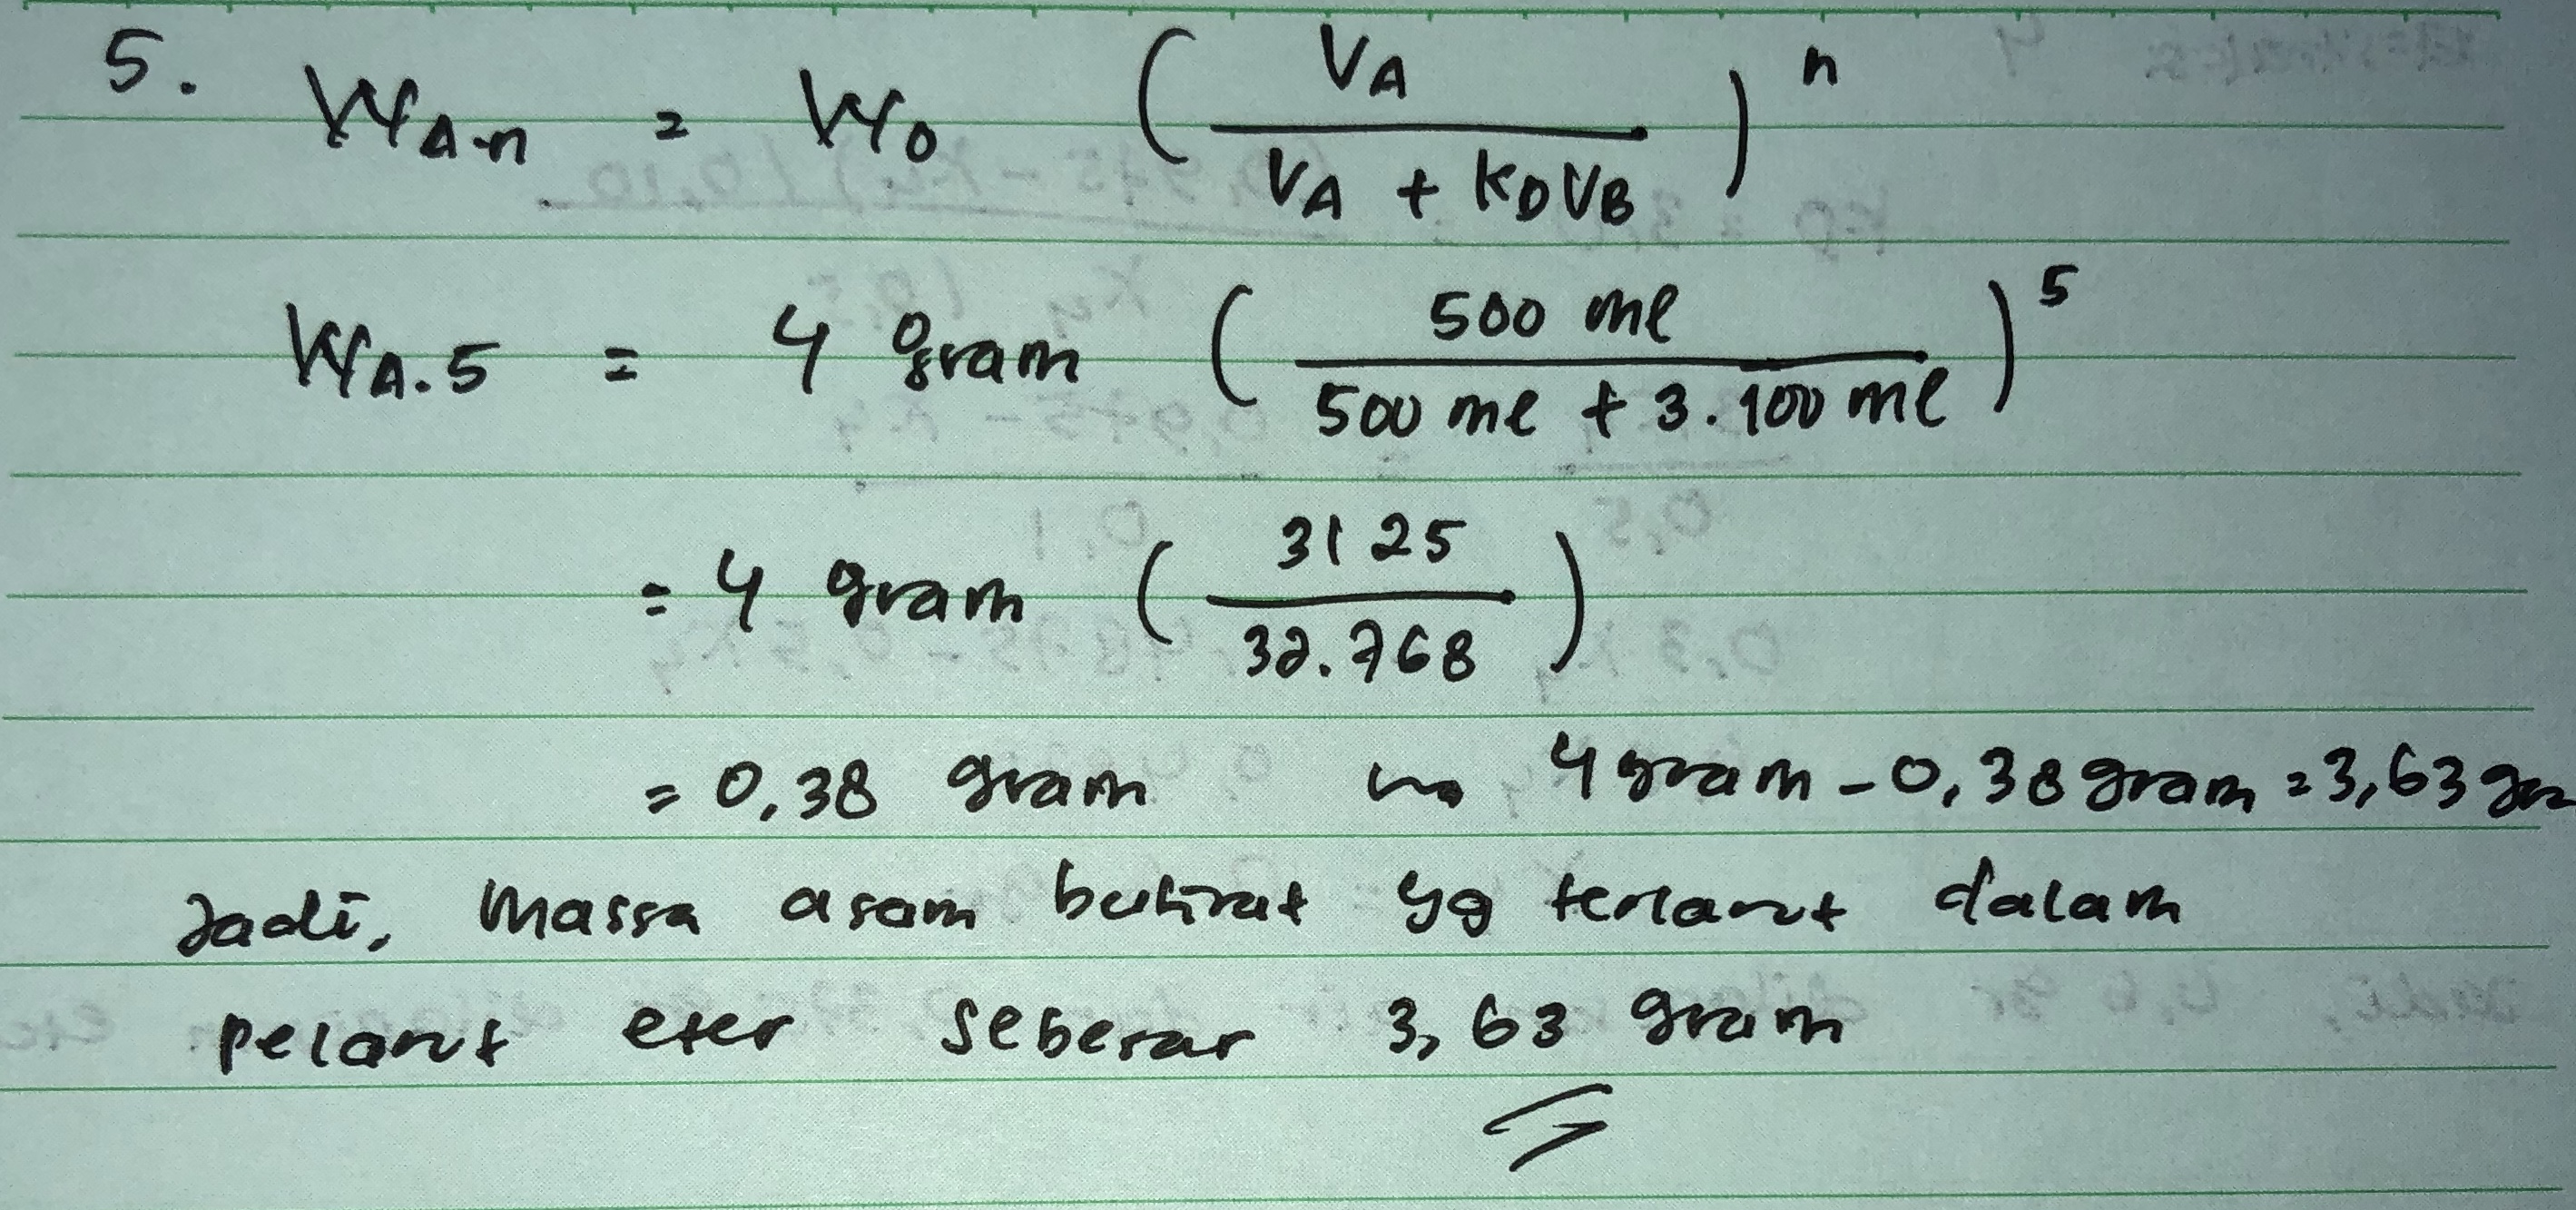 5. W_A.n = W_0 ( V_A / V_A + K_D V_B )^n
W_A.5 = 4 gram ( 500 ml / 500 ml + 3.100 ml )^5
= 4 gram ( 3125 / 32.768 )
= 0,38 gram ↝ 4 gram - 0,38 gram = 3,63 gra
Jadi, Massa asam butirat yg terlarut dalam
pelarut eter sebesar 3,63 gram